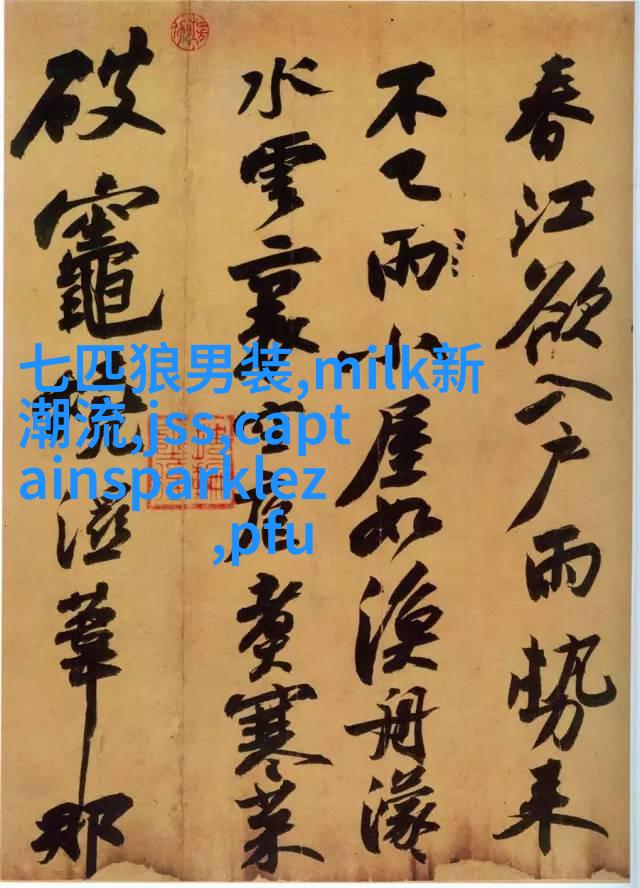 春江欲入戶雨勢来
不已雨小屋如漁舟濛
水雲裏空庖煮寒菜
破竈燒溼葦那
七匹狼男装,milk新
潮流,jss,capt
ainsparklez
,pfu